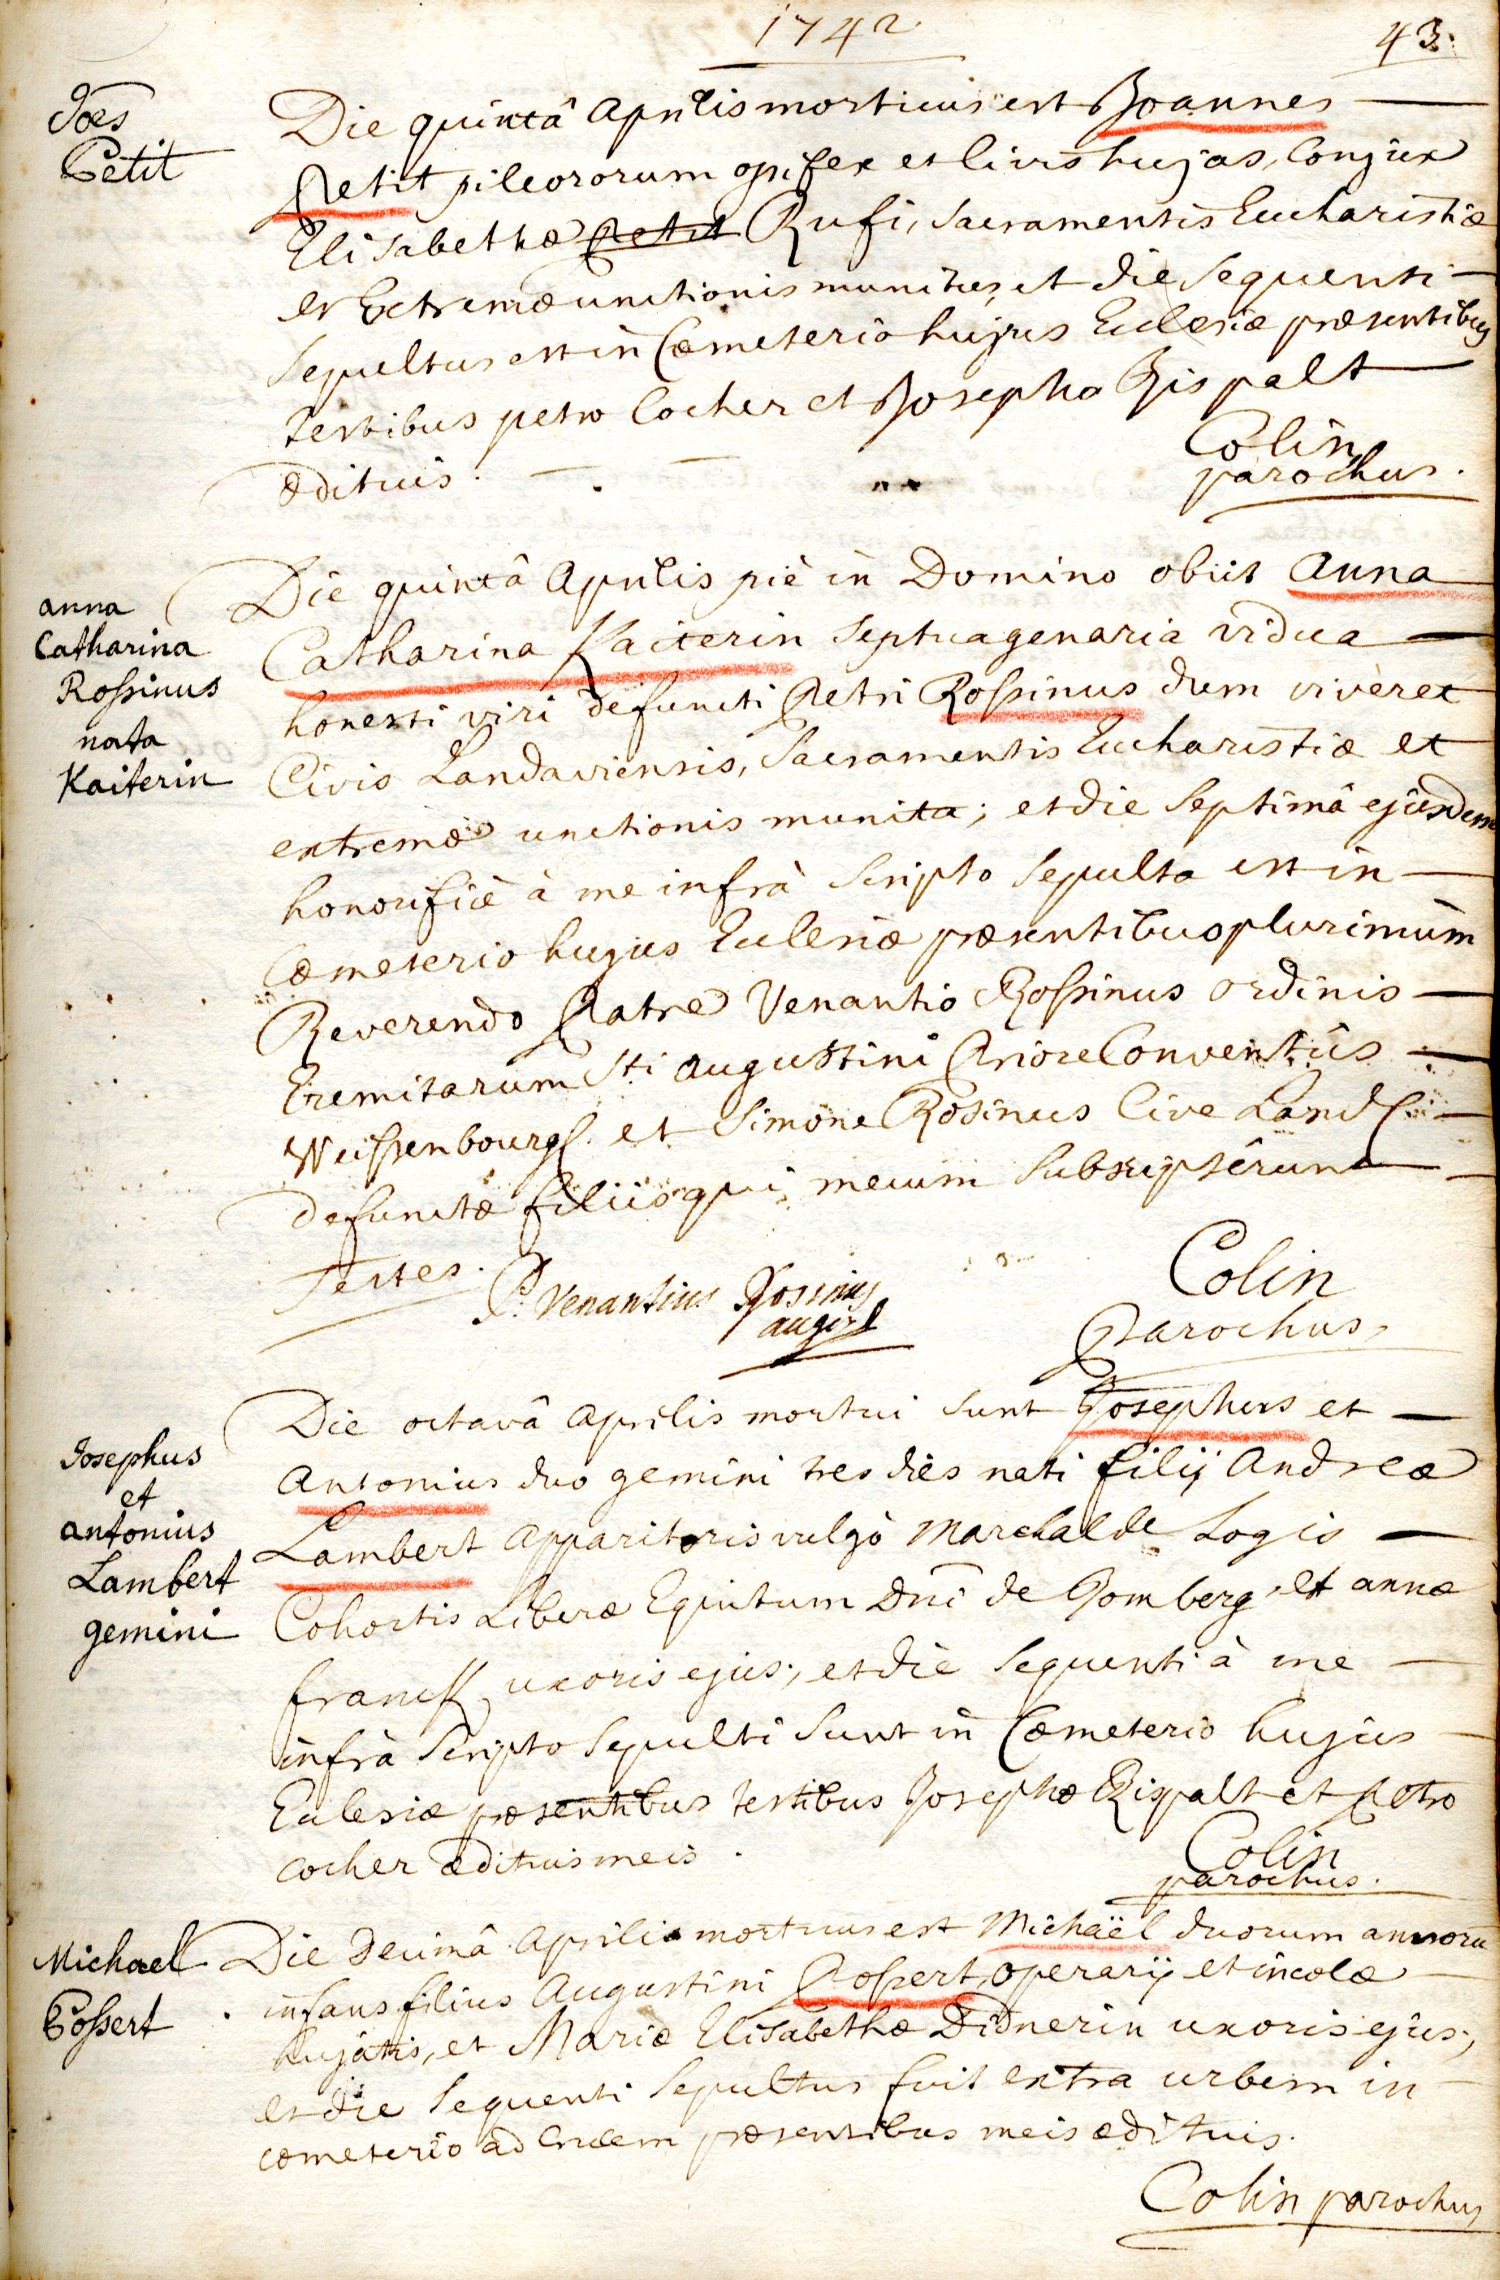 1742
43.
Joēs
Petit
Die quintâ aprilis mortuus est Joannes
Petit pileororum opifex et civis hujas, Conjux
Elisabethæ Petit Rufi, Sacramentis Eucharistiæ
et Extremæ unctionis munitus, et die sequenti
sepultus est in Cœmeterio hujus Ecclesiæ præsentibus
testibus petro Cocher et Josepho Rispalt
ædituis.
Colin
parochus.
anna
Catharina
Roſsinus
nata
Kaiterin
Die quintâ Aprilis piè in Domino obiit Anna
Catharina Kaiterin septuagenaria vidua
honesti viri defuncti Petri Roſsinus dum viveret
Civis Landaviensis, Sacramentis Eucharistiæ et
extremæ unctionis munita; et die septimâ ejusdem
honorificè à me infrà scripto sepulta est in
Cœmeterio hujus Ecclesiæ præsentibus plurimùm
Reverendo Patre Venantio Roſsinus ordinis
Eremitarum Sti Augustini Priore Conventûs
Weiſsenbourg. et Simone Rosinus Cive Land.
defunctæ filiis qui mecum subscripsêrunt
Testes.
P. Venantius Rossinus
Colin
Parochus.
Josephus
et
antonius
Lambert
gemini
Die octavâ aprilis mortui sunt Josephus et
Antonius duo gemini tres diès nati filij Andreæ
Lambert apparitoris vulgò Marchal de Logis
Cohortis Liberæ Equitum Dnī de Jomberg, et annæ
franck uxoris ejus; et diè sequenti à me
infrà scripto sepulti sunt in Cœmeterio hujus
Ecclesiæ præsentibus testibus Josepho Rispalt et Petro
cocher ædituis meis.
Colin
parochus.
Michael
Poſsert
Die decimâ Aprilis mortuus est Michaël duorum annorū
infans filius Augustini Poſsert, operarij et incolæ
hujatis, et Mariæ Elisabethæ Didnerin uxoris ejus;
et die sequenti sepultus fuit extra urbem in
cœmeterio ad Crucem præsentibus meis ædituis.
Colin parochus